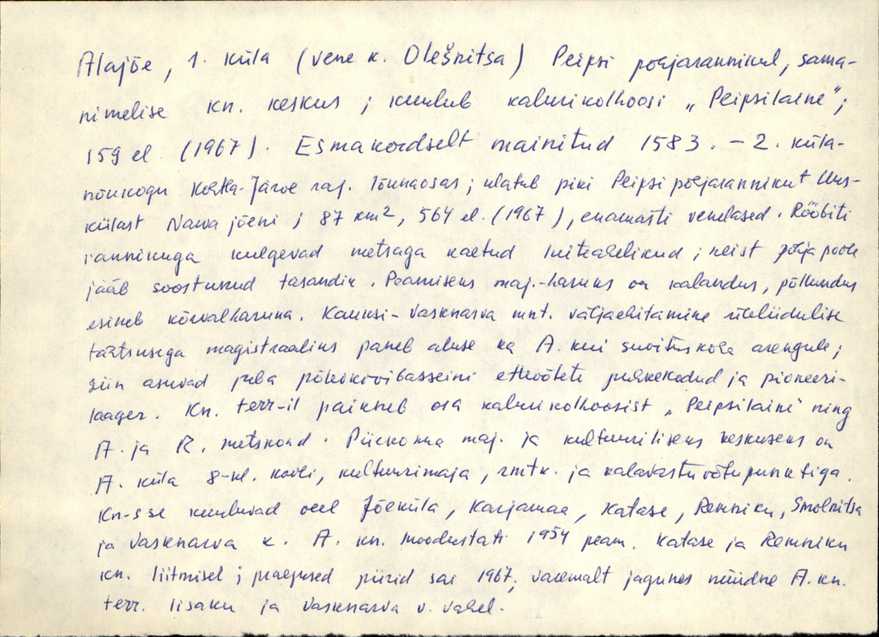 Alajõe, 1. küla (vene k. Olešnitsa) Peipsi põhjarannikul, sama-
nimelise kn. keskus; kuulub kalurikolhoosi „Peipsilaine";
159 el. (1967). Esmakordselt mainitud 1583. – 2. küla-
nõukogu Kohtla-Järve raj. lõunaosas; ulatub piki Peipsi põhjarannikut Uus-
külast Narva jõeni; 87 km², 564 el. (1967), enamasti venelased. Rööbiti
rannikuga kulgevad metsaga kaetud luiteahelikud; neist põhja poole
jääb soostunud tasandik. Peamiseks maj.-haruks on kalandus, põllundus
esineb kõrvalharuna. Kauksi-Vasknarva mnt. väljaehitamine üleliidulise
tähtsusega magistraaliks paneb aluse ka A. kui suvituskoha arengule;
siin asuvad juba põlevkivibasseini ettevõtete puhkekodud ja pioneeri-
laager. Kn. terr-il paikneb osa kalurikolhoosist „Peipsilaine" ning
A. ja R. metskond. Piirkonna maj. ja kultuuriliseks keskuseks on
A. küla 8-kl. kooli, kultuurimaja, rmtk. ja kalavastuvõtupunktiga.
Kn-sse kuuluvad veel Jõeküla, Karjamaa, Katase, Remniku, Smolnitsa
ja Vasknarva k. A. kn. moodustati 1954 peam. Katase ja Remniku
kn. liitmisel; praegused piirid sai 1967; varemalt jagunes nüüdne A. kn.
terr. Iisaku ja Vasknarva v. vahel.